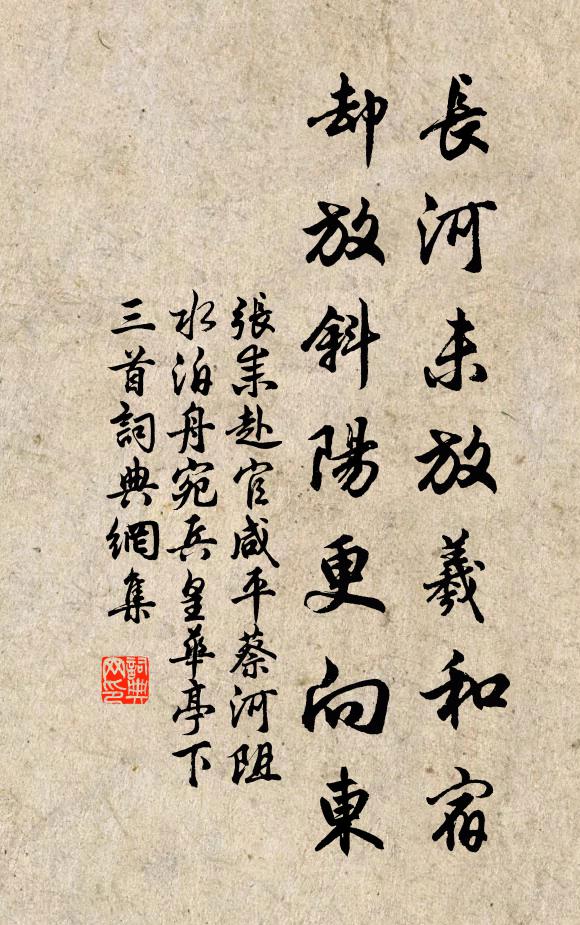 長河未放羲和宿
却放斜陽更向東
張耒赴官咸平蔡河阻
水泊舟宛兵皇華亭下
三首詞典網集
詞典
网印